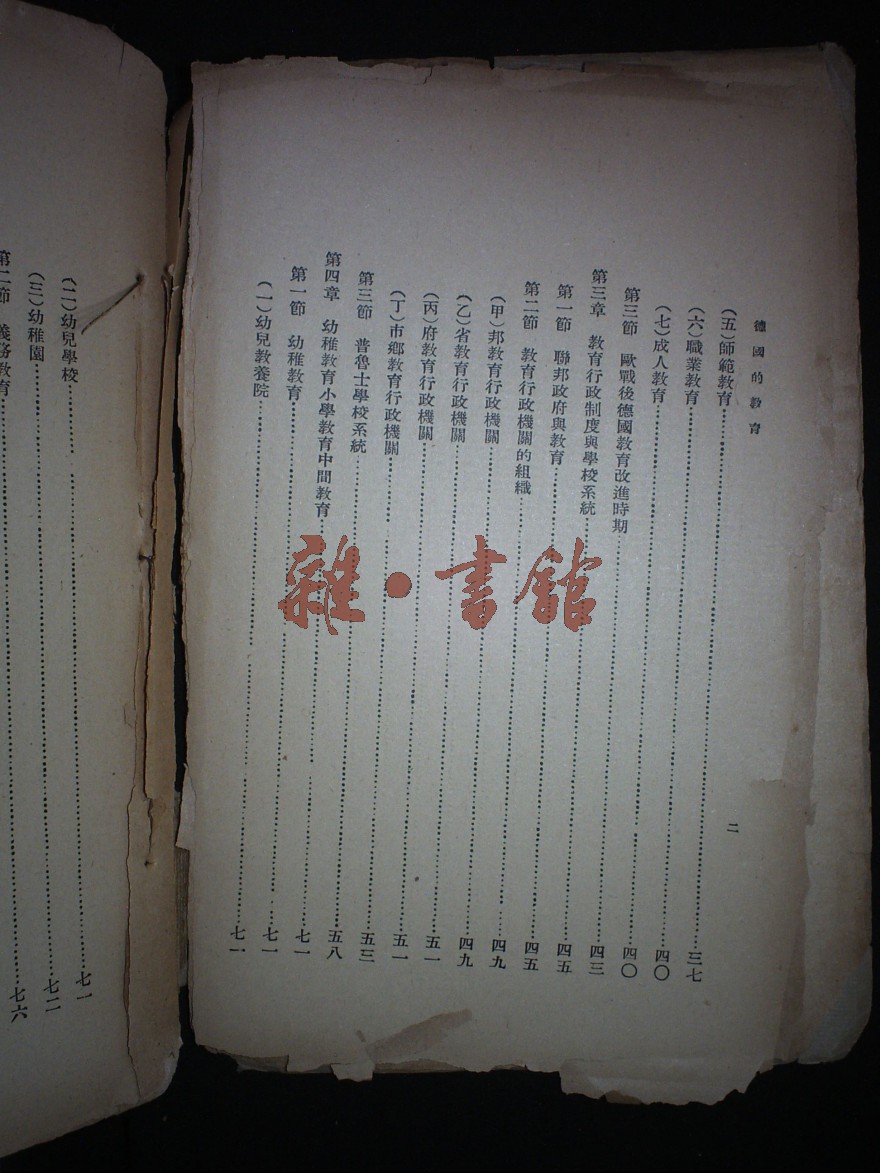 德國的教育
二
(五)師範教育……三七
(六)職業教育……四〇
(七)成人教育……四〇
第三節 歐戰後德國教育改進時期……四三
第三章 教育行政制度與學校系統……四五
第一節 聯邦政府與教育……四五
第二節 教育行政機關的組織……四九
(甲)邦教育行政機關……四九
(乙)省教育行政機關……五一
(丙)府教育行政機關……五一
(丁)市鄉教育行政機關……五三
第三節 普魯士學校系統……五八
第四章 幼稚教育小學教育中間教育……七一
第一節 幼稚教育……七一
(一)幼兒教養院……七一
(二)幼兒學校……七一
(三)幼稚園……七二
第二節 義務教育……七六
雜•書館